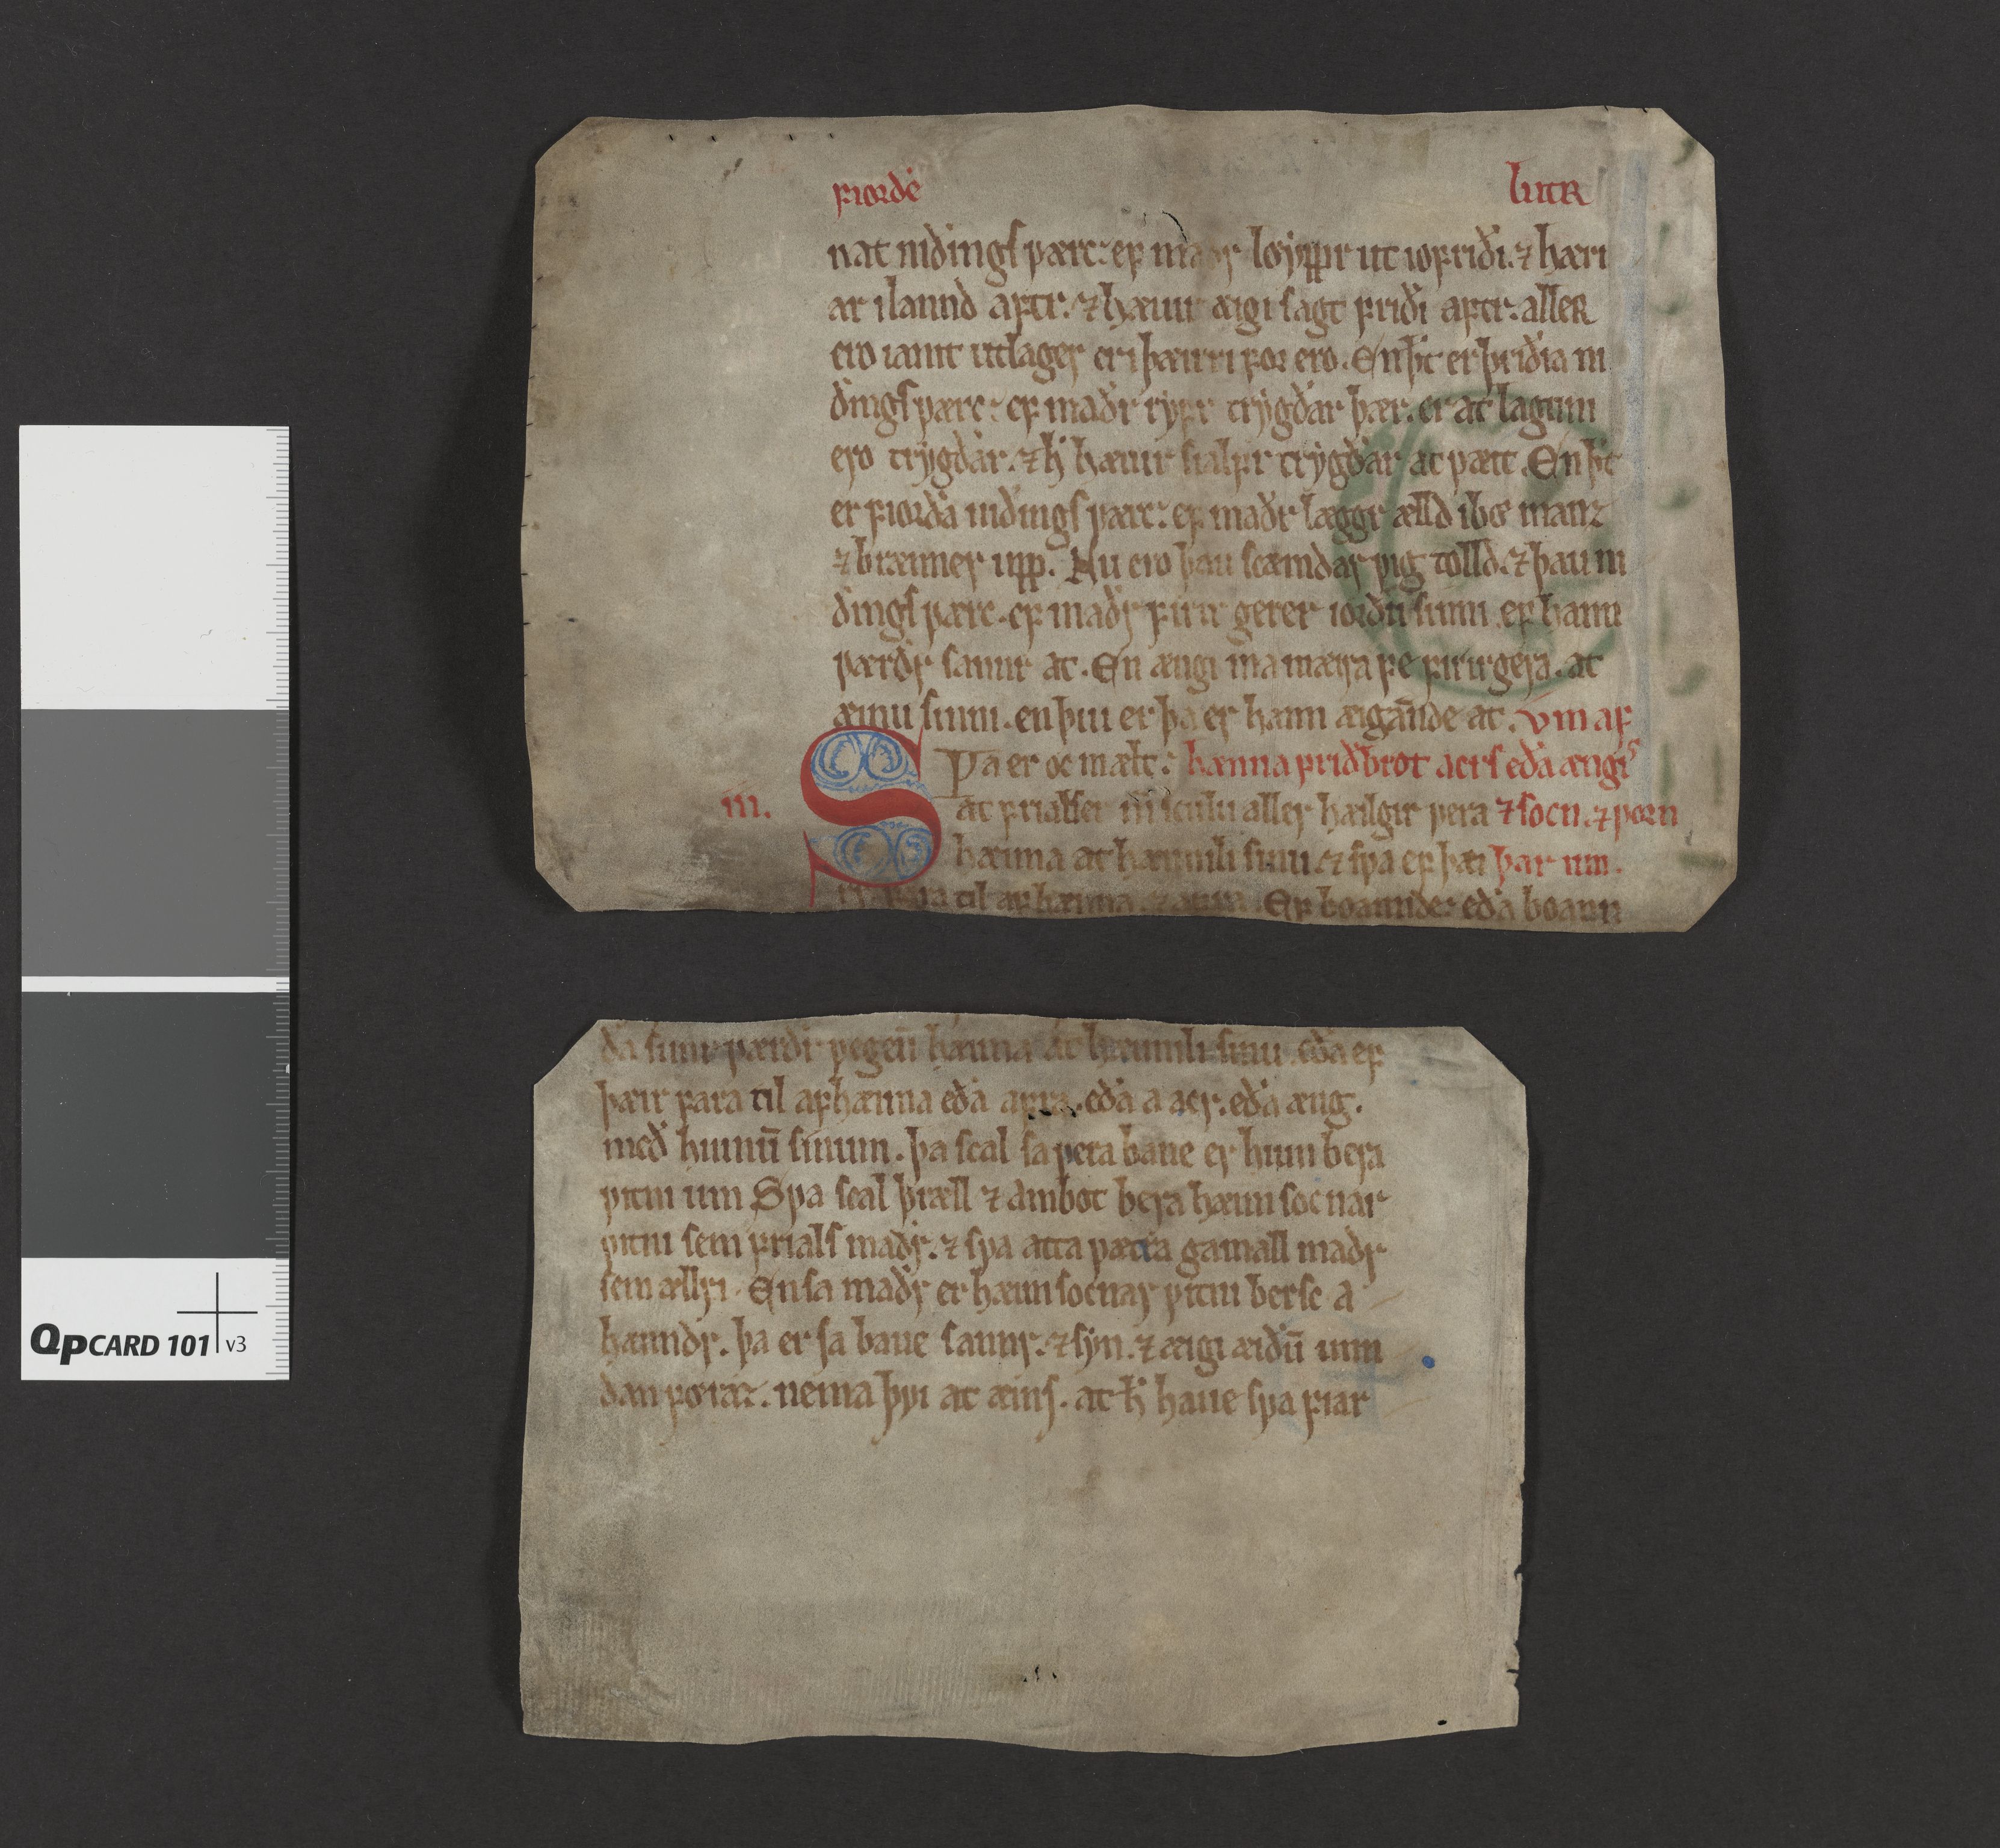 fiorðe lutR
nat niðings værc: ef maðr løyppr ut i ofriði. ⁊ hæri
ar i lannd aftr. ⁊ hævir æigi sagt friði aftr: alleR
ero iamt utlager er i hærnri for ero. En þ̃t er þriðia ni
ðings værc: ef maðr ryfr trygðar þær. er at lagum
ero trygðar. ⁊ h̃ hævir sialfr trygðar at væit. En þ̃t
er fiorða niðings værc: ef maðr læggr ælld i bø mannz
⁊ brænner upp. Nu ero þau scæmdar vig tolld. ⁊ þau ni
ðings værc. ef maðr firir gerer iorðu sinni. ef hann
værðr sannr at. En ængi ma mæira fe firir gera. at
æinu sinni. en þui er þa er hann æigannde at. vm af
Sva er oc mælt: hænna friðbrot acrs eða ængi
iii. at frialser m̃ sculu aller hæilgir vera ⁊ socn. ⁊ vorn
hæima at hæimili sinu. ⁊ sva ef þæi þar um.
til afhænna. Ef boannde: eða boann
ða sunr værðr vegen̄ hæima at hæimili sinu. eða ef
þæir fara til afhænna eða afra. eða a acr. eða æng.
með hiunū sinum. þa scal sa vera bane er hiun bera
vitni um Sva scal þræll ⁊ ambot bera hæim socnar
vitni sem frials maðr. ⁊ sva atta vætra gamall maðr
sem ællri. En sa maðr er hæim socnar vitni bersc a
hænndr. þa er sa bane sannr. ⁊ syn. ⁊ æigi æiðū unn
dan føraz. nema þvi at æins. at h̃ have sva fiar